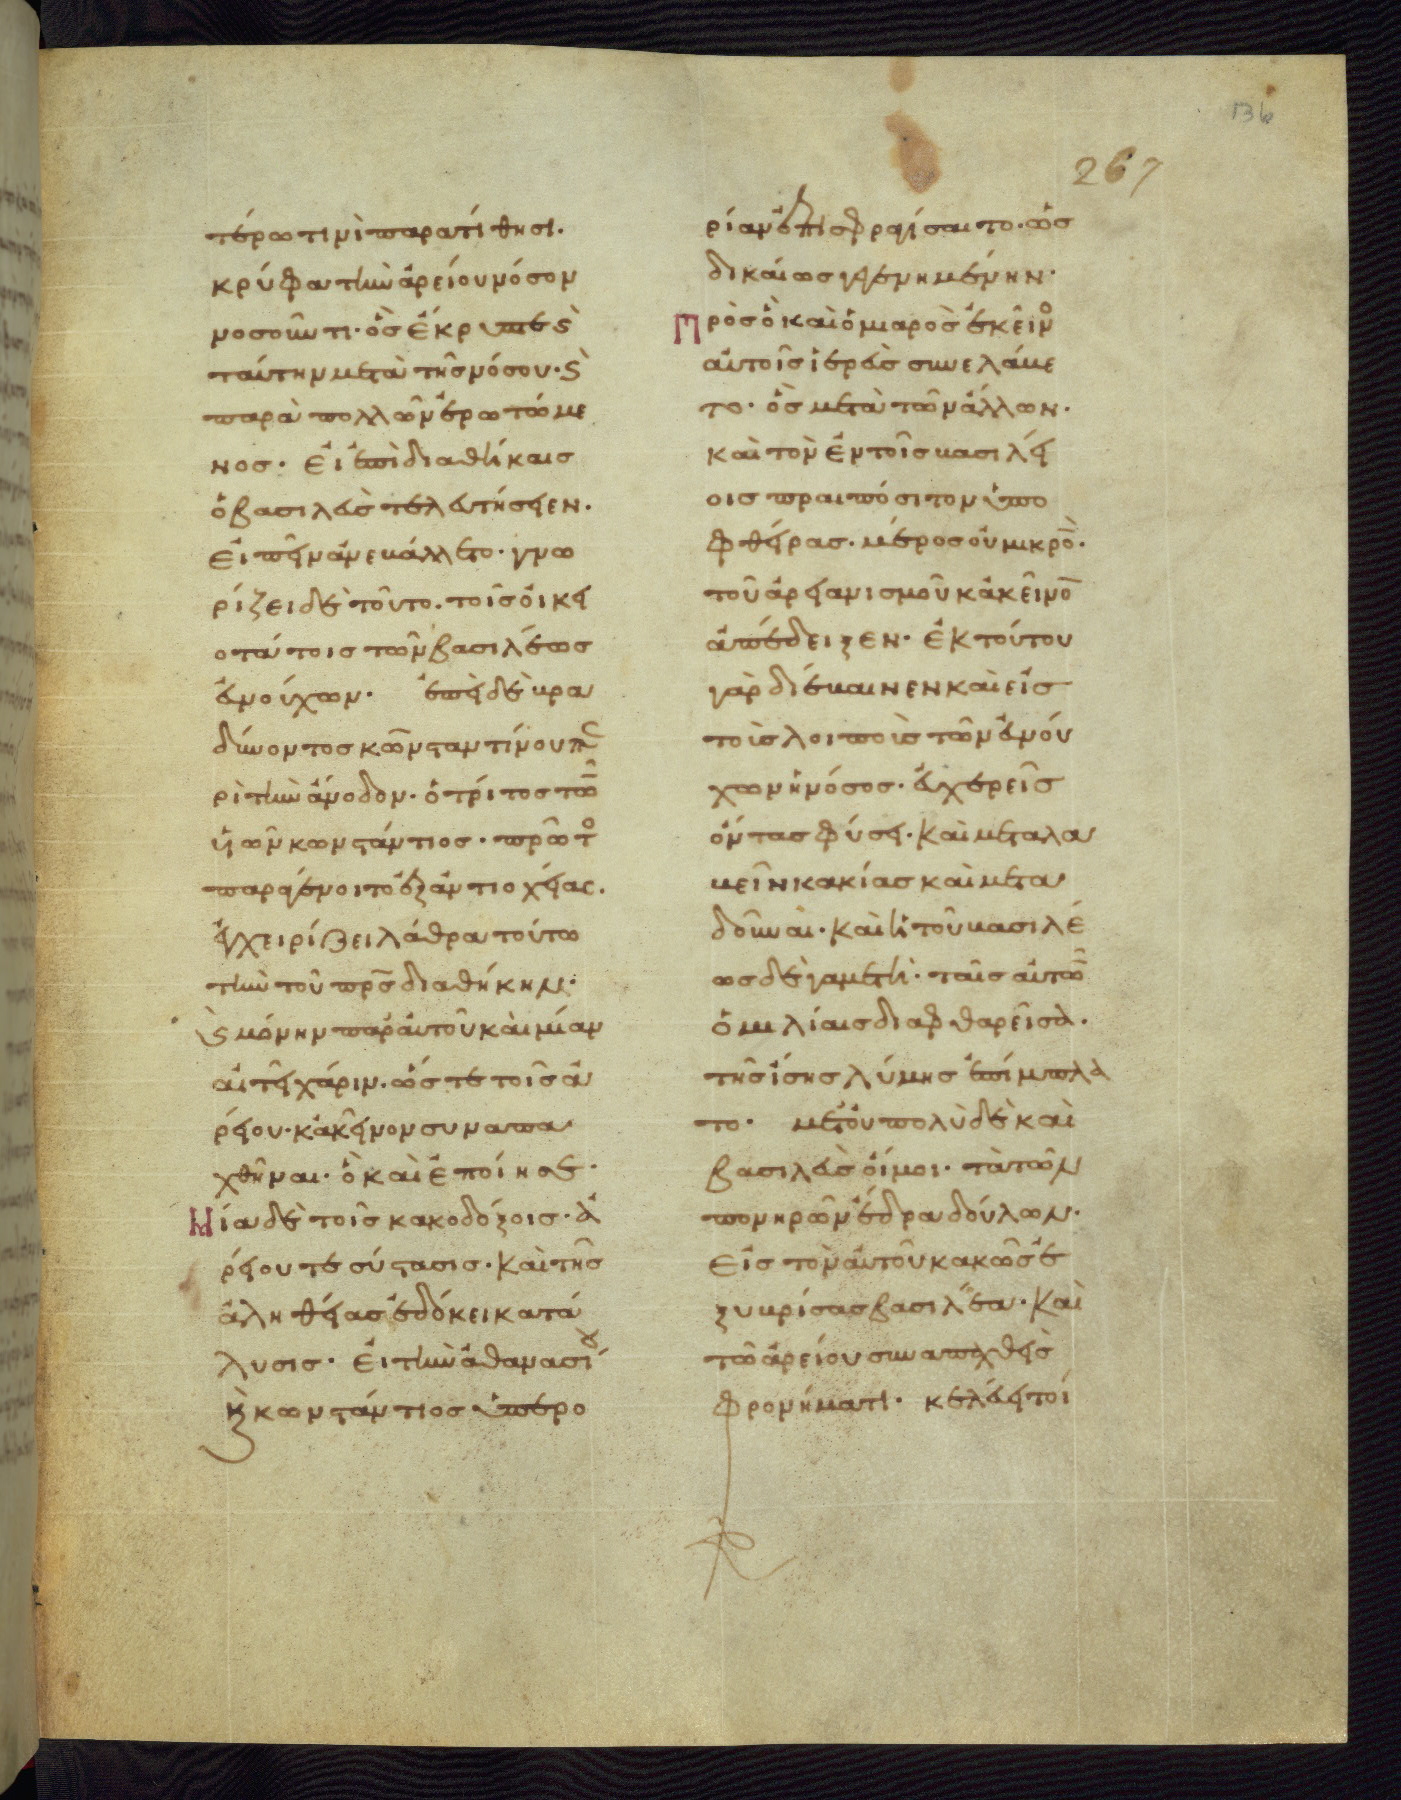 136
267
τέρω τινὶ παρατίθησι.
κρύφα τὴν ἀρείου νόσον
νοσοῦντι· ὃς ἔκρυπτέ
ταύτην μετὰ τῆς νόσου·
παρὰ πολλῶν ἐρωτώμε
νος· εἰ ἐπὶ διαθήκαις
ὁ βασιλεὺς τελευτήσειεν.
εἰπεῖν ἀνεβάλλετο· γνω
ρίζει δὲ τοῦτο. τοῖς οἰκει
οτάτοις τῶν βασιλέως
εὐνούχων. ἐπεὶ δὲ βρα
δύνοντος κῶνσταντίνου πε
ρὶ τὴν ἄνοδον. ὁ τρίτος τῶν
υἱῶν κωνστάντιος. πρῶτο
παραγένοιτο ἐξ ἀντιοχείας.
ἐγχειρίζει λάθρα τούτω
τὴν τοῦ πρς διαθήκην.
μόνην παρ' αὐτοῦ καὶ μίαν
αἰτεῖ χάριν. ὥστε τοῖς ἀ
ρείου· κἀκεῖνον συναπα
χθῆναι. ὃ καὶ ἐποίησε.
Μία δὲ τοῖς κακοδόξοις. ἀ
ρείου τε σύστασις. καὶ τῆς
ἀληθείας ἐδόκει κατά
λυσις. εἰ τὴν ἀθανασίου
κ κωνστάντιος ὑπερο
ρίαν ἐπισφραγίσαιτο. ὡς
δικαίως γεγενημένην.
Πρὸς ὃ καὶ ὁ μιαρὸς ἐκεῖνο
αὐτοῖς ἱερεὺς συνελάβε
το. ὃς μετὰ τῶν ἄλλων.
καὶ τὸν ἐν τοῖς βασιλεί
οις πραιπόσιτον ὑπο
φθείρας. μέρος οὐ μικρὸ.
τοῦ ἀρειανισμοῦ κἀκεῖνο
ἀπέδειξεν. ἐκ τούτου
γὰρ διέβαινεν καὶ εἰς
τοὺς λοιποὺς τῶν εὐνού
χων ἡ νόσος. εὐχερεῖς
ὄντας φύσει. καὶ μεταλα
βεῖν κακίας καὶ μετα
δοῦναι. καὶ ἡ τοῦ βασιλέ
ως δὲ γαμετὴ. ταῖς αὐτῶ
ὁμιλίαις διαφθαρεῖσα.
τῆς ἴσης λύμης ἐπίμπλα
το. μετ' οὐ πολὺ δὲ καὶ
βασιλεὺς οἴμοι. τὰ τῶν
πονηρῶν ἔδρα δούλων.
εἰς τὸν αὐτοῦ κακῶς ἐ
ξυβρίσας βασιλέα. καὶ
τῶ ἀρείου συναπαχθεὶς
φρονήματι. κελεύει τοί